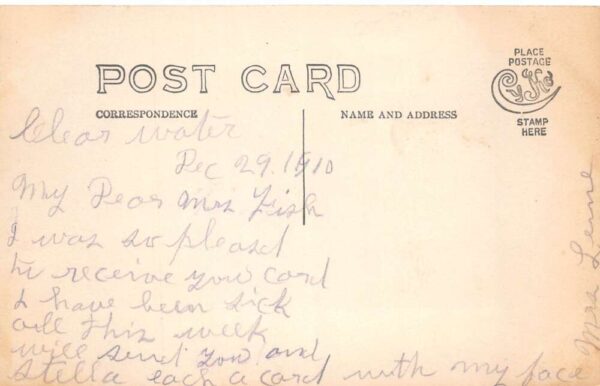 POST CARD
CORRESPONDENCE
NAME AND ADDRESS
PLACE
POSTAGE
CYKO
STAMP
HERE
Clear water
Dec 29. 1910
My Dear Mrs Fish
I was so pleasd
to receive you card
I have been sick
all this week
will send you and
Stella each a card with my face
Mrs